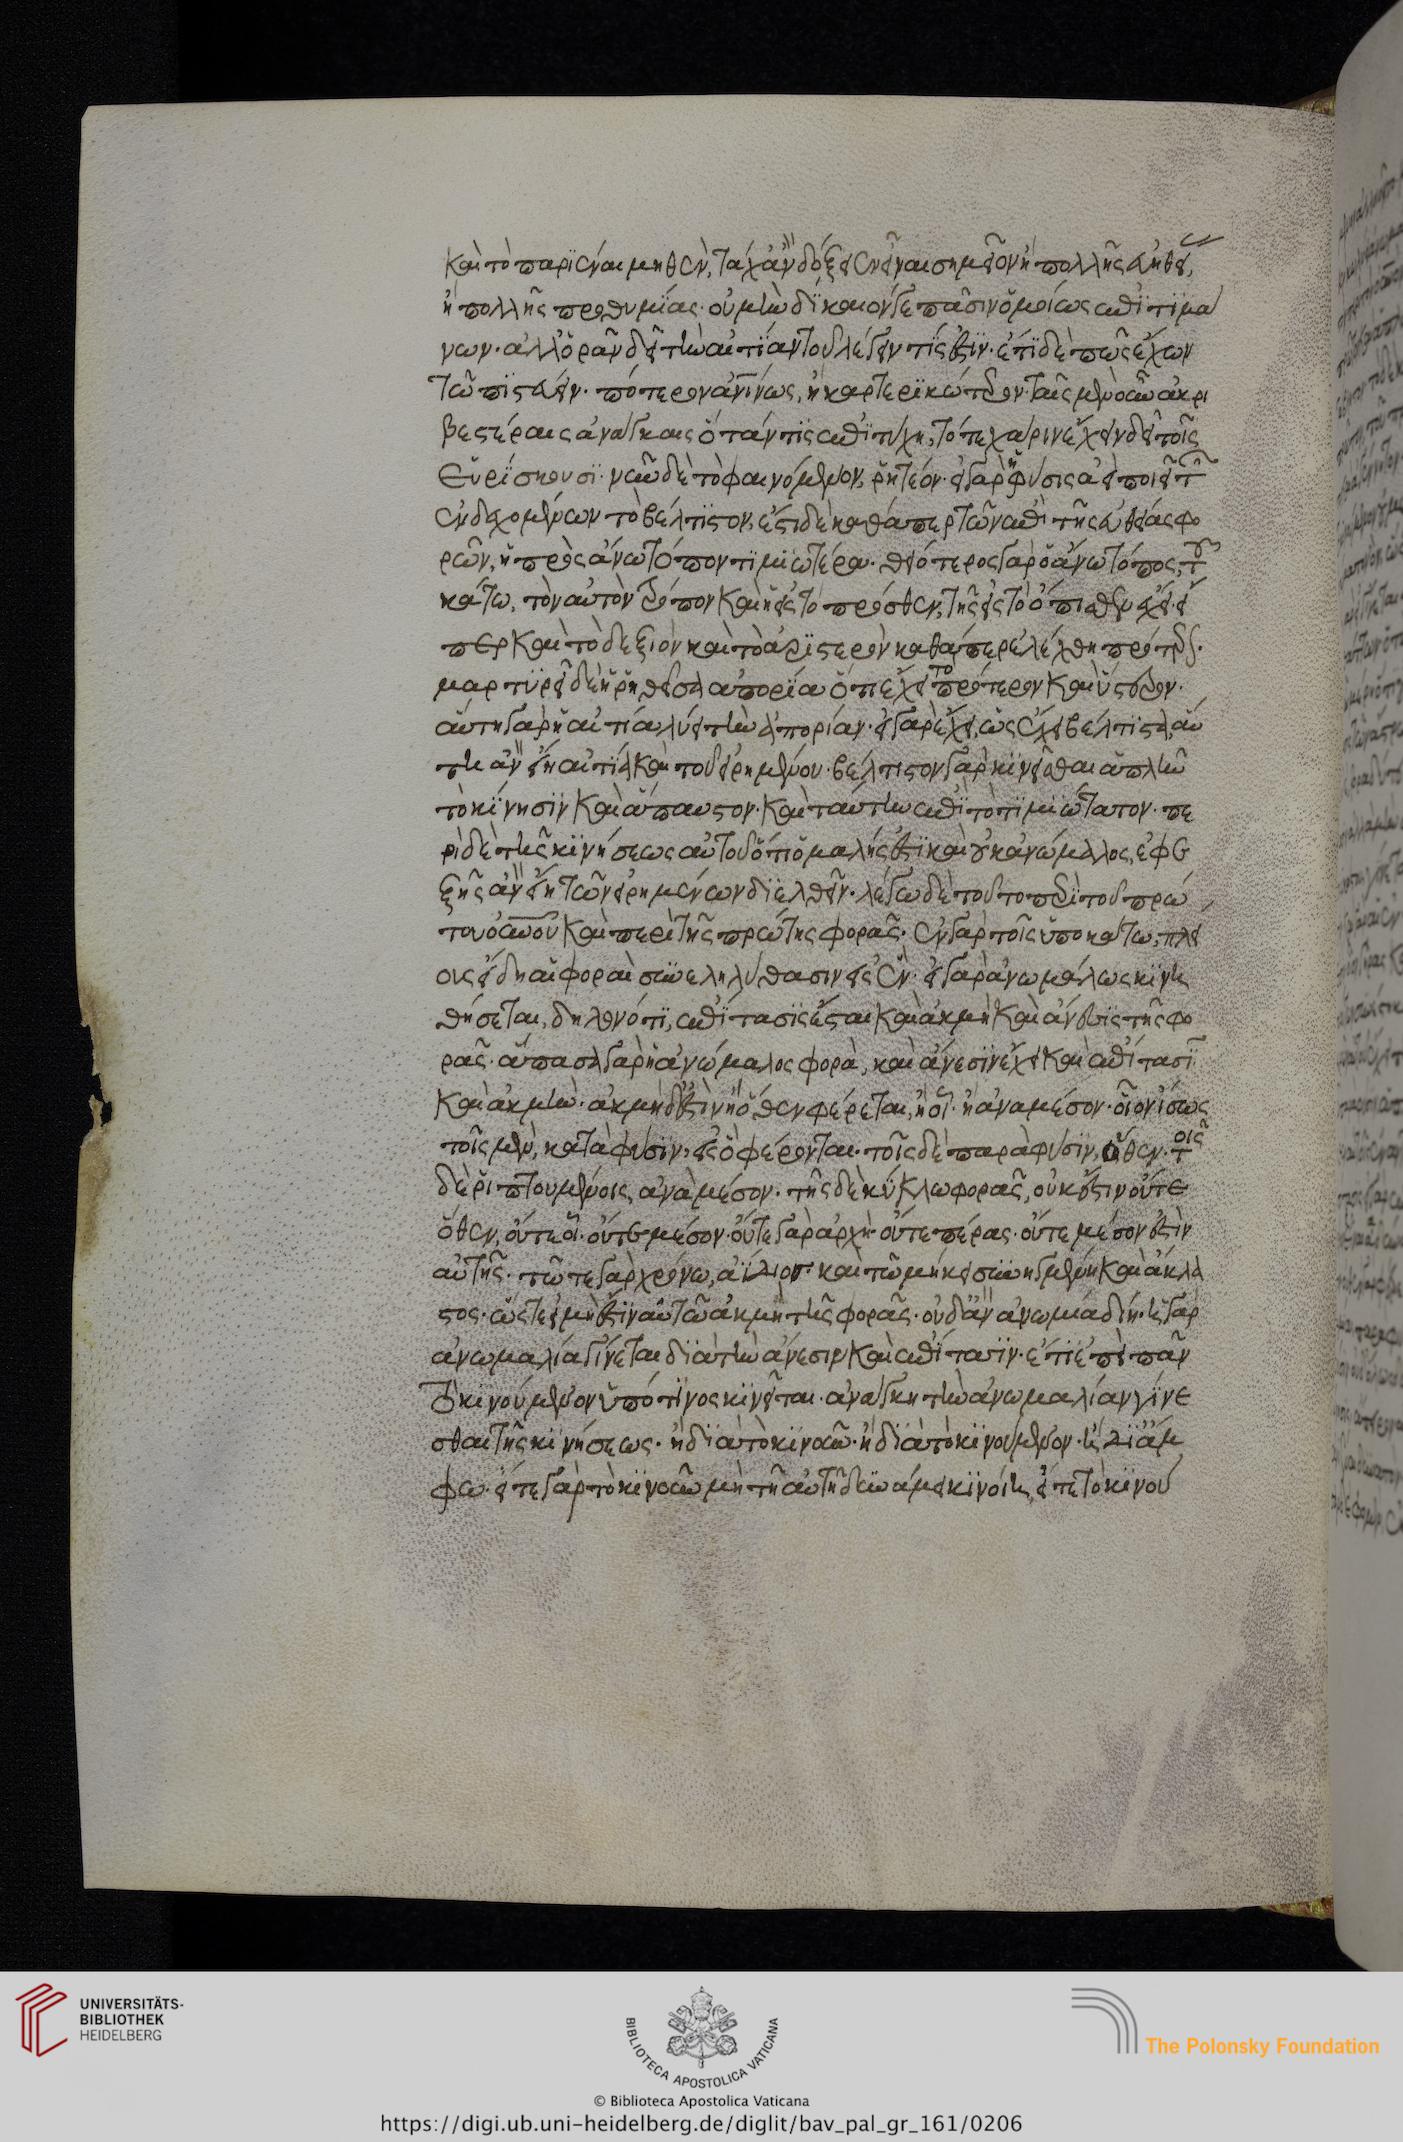 καὶ τὸ παριέναι μηθὲν, τάχ' ἂν δόξειεν εἶναι σημεῖον ἢ πολλῆς εὐηθείας,
ἢ πολλῆς προθυμίας· οὐ μὴν δίκαιον γε πᾶσιν ὁμοίως ἐπιτιμᾶ
νων· ἀλλ' ὁρᾶν δεῖ τὴν αἰτίαν τοῦ λέγειν τίς ἐστιν· ἔτι δὲ πῶς ἔχων
τῶ πιστεύειν· πότερον ἀνίνως, ἢ καρτερικώτερον· ταῖς μὲν οὖν ἀκρι
βεστέραις ἀνάγκαις ὅταν τις ἐπιτύχη, τότε χάριν ἔχειν δεῖ τοῖς
εὑρίσκουσι· νῦν δὲ τὸ φαινόμενον, ῥητέον· εἰ γὰρ ἡ φύσις ἀεὶ ποιεῖ τῶν
ἐνδεχομένων τὸ βέλτιστον, ἔστι δὲ καθάπερ τῶν ἐπὶ τῆς εὐθείας φο
ρῶν, ἡ πρὸς ἄνω τόπον τιμιωτέρα· θειότερος γὰρ ὁ ἄνω τόπος, τοῦ
κάτω, τὸν αὐτὸν τρόπον καὶ ἡ εἰς τὸ πρόσθεν, τῆς εἰς τὸ ὄπισθεν ἔχει· εἴ
περ καὶ τὸ δεξιὸν καὶ τὸ ἀριστερὸν καθάπερ ἐλέχθη πρότερον·
μαρτυρεῖ δὲ ἡ ῥηθεῖσα ἀπορία ὅτι ἔχει τὸ πρότερον καὶ ὕστερον·
αὕτη γὰρ ἡ αἰτία λύει τὴν ἀπορίαν· εἰ γὰρ ἔχει, ὡς ἐνδέχεται βέλτιστα, αὕ
τη ἂν εἴη αἰτία καὶ τοῦ εἰρημένου· βέλτιστον γὰρ κινεῖσθαι ἁπλῆν
τὸ κίνησιν καὶ ἄπαυστον· καὶ ταύτην ἐπὶ τὸ τιμιώτατον· πε
ρὶ δὲ τῆς κινήσεως αὐτοῦ ὅτι ὁμαλής ἐστι καὶ οὐκ ἀνώμαλος, ἐφε
ξῆς ἂν εἴη τῶν εἰρημένων διελθεῖν· λέγω δὲ τοῦτο περὶ τοῦ πρώ
του οὐνοῦ καὶ περὶ τῆς πρώτης φορᾶς· ἐν γὰρ τοῖς ὑποκάτω, πλεί
οις ἤδη αἱ φοραὶ συνεληλύθασιν εἰς ἕν· εἰ γὰρ ἀνωμάλως κινη
θήσεται, δηλονότι, ἐπίτασις ἔσται καὶ ἀκμὴ καὶ ἄνεσις τῆς φο
ρᾶς· ἅπασα γὰρ ἡ ἀνώμαλος φορὰ, καὶ ἄνεσιν ἔχει καὶ ἐπίτασιν
καὶ ἀκμὴν· ἀκμὴ δ' ἐστὶν ἢ ὅθεν φέρεται, ἢ οἷ· ἢ ἀναμέσον· οἷον ἴσως
τοῖς μὲν, κατὰ φύσιν, εἰς ὃ φέρονται· τοῖς δὲ παρὰ φύσιν, ὅθεν· τοῖς
δὲ ῥιπτουμένοις, ἀνὰ μέσον· τῆς δὲ κύκλω φορᾶς, οὐκ ἔστιν οὔτε
ὅθεν, οὔτε οἷ· οὔτε μέσον· οὔτε γὰρ ἀρχὴ· οὔτε πέρας· οὔτε μέσον ἐστὶν
αὐτῆς· τῶ τε γὰρ χρόνω, ἀΐδιος· καὶ τῶ μήκει συνηγμένη καὶ ἄκλα
στος· ὥστε εἰ μὴ ἔστιν αὐτῶ ἀκμὴ τῆς φορᾶς· οὐδ' ἂν ἀνωμαλία εἴη· ἡ γὰρ
ἀνωμαλία γίνεται διὰ τὴν ἄνεσιν καὶ ἐπίτασιν· ἔτι ἐπεὶ πᾶν
τὸ κινούμενον ὑπό τινος κινεῖται· ἀνάγκη τὴν ἀνωμαλίαν γίνε
σθαι τῆς κινήσεως· ἢ διὰ τὸ κινοῦν· ἢ διὰ τὸ κινούμενον· ἢ δι' ἄμ
φω· εἴτε γὰρ τὸ κινοῦν μὴ τῆ αὐτῆ δυνάμει κινοίη, εἴτε τὸ κινού
UNIVERSITÄTS-
BIBLIOTHEK
HEIDELBERG
BIBLIOTECA APOSTOLICA VATICANA
The Polonsky Foundation
© Biblioteca Apostolica Vaticana
https://digi.ub.uni-heidelberg.de/diglit/bav_pal_gr_161/0206